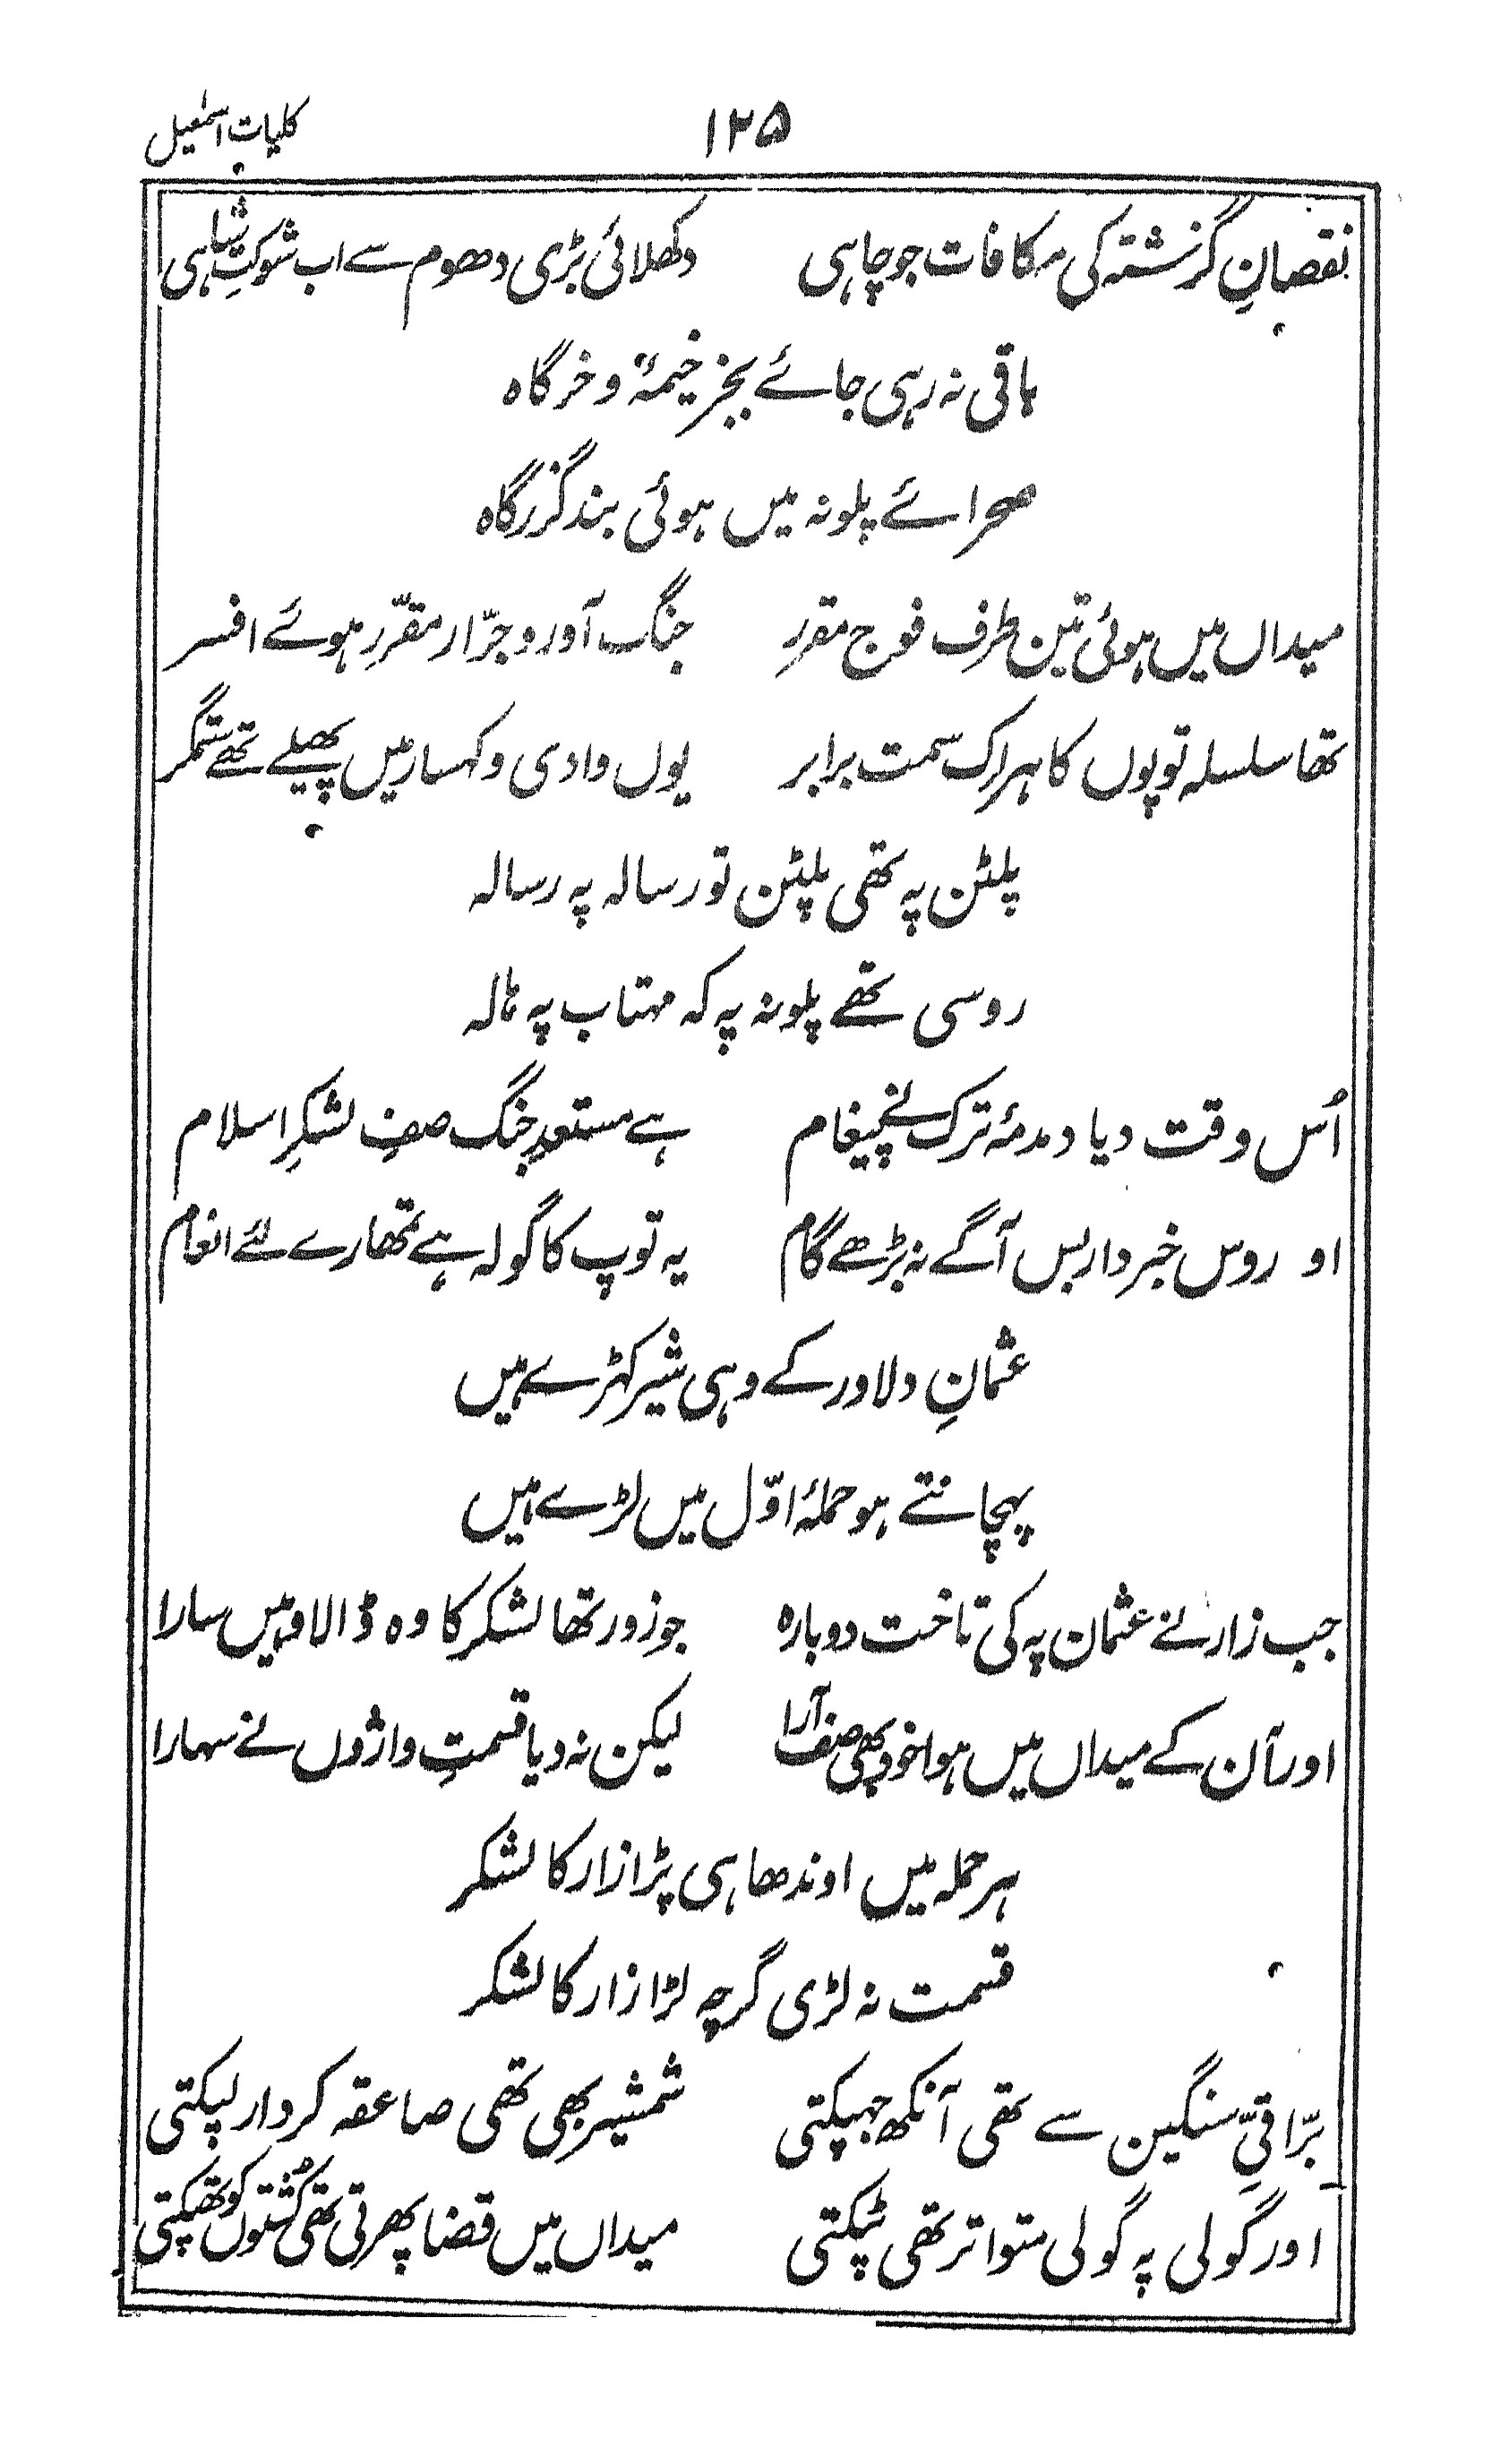 کلیات اسمٰعیل
۱۲۵
نقصانِ گزشتہ کی مکافات جو چاہی دکھلائی بڑی دھوم سے اب شوکتِ شاہی
باقی نہ رہی جائے بجز خیمۂ و خرگاہ
صحرائے پلونہ میں ہوئی بند گزرگاہ
میداں میں ہوئی تین طرف فوج مقرر جنگ آور و جرّار مقرّر ہوئے افسر
تھا سلسلہ توپوں کا ہر اک سمت برابر یوں وادی و کہسار میں پھیلے تھے ستمگر
پلٹن پہ تھی پلٹن تو رسالہ پہ رسالہ
روسی تھے پلونہ پہ کہ مہتاب پہ ہالہ
اُس وقت دیا دمدمۂ ترک نے پیغام ہے مستعدِ جنگ صفِ لشکرِ اسلام
او روس خبردار بس آگے نہ بڑھے گام یہ توپ کا گولہ ہے تمھارے لئے انعام
عثمانِ دلاور کے وہی شیر کھڑے ہیں
پہچانتے ہو حملۂ اوّل میں لڑے ہیں
جب زار نے عثمان پہ کی تاخت دوبارہ جو زور تھا لشکر کا وہ ڈالا وہیں سارا
اور آن کے میداں میں ہوا خود بھی صف آرا لیکن نہ دیا قسمتِ واژوں نے سہارا
ہر حملہ میں اوندھا ہی پڑا زار کا لشکر
قسمت نہ لڑی گرچہ لڑا زار کا لشکر
برّاقیِ سنگین سے تھی آنکھ جھپکتی شمشیر بھی تھی صاعقہ کردار لپکتی
اور گولی پہ گولی متواتر تھی ٹپکتی میداں میں قضا پھرتی تھی کُشتوں کو تھپکتی